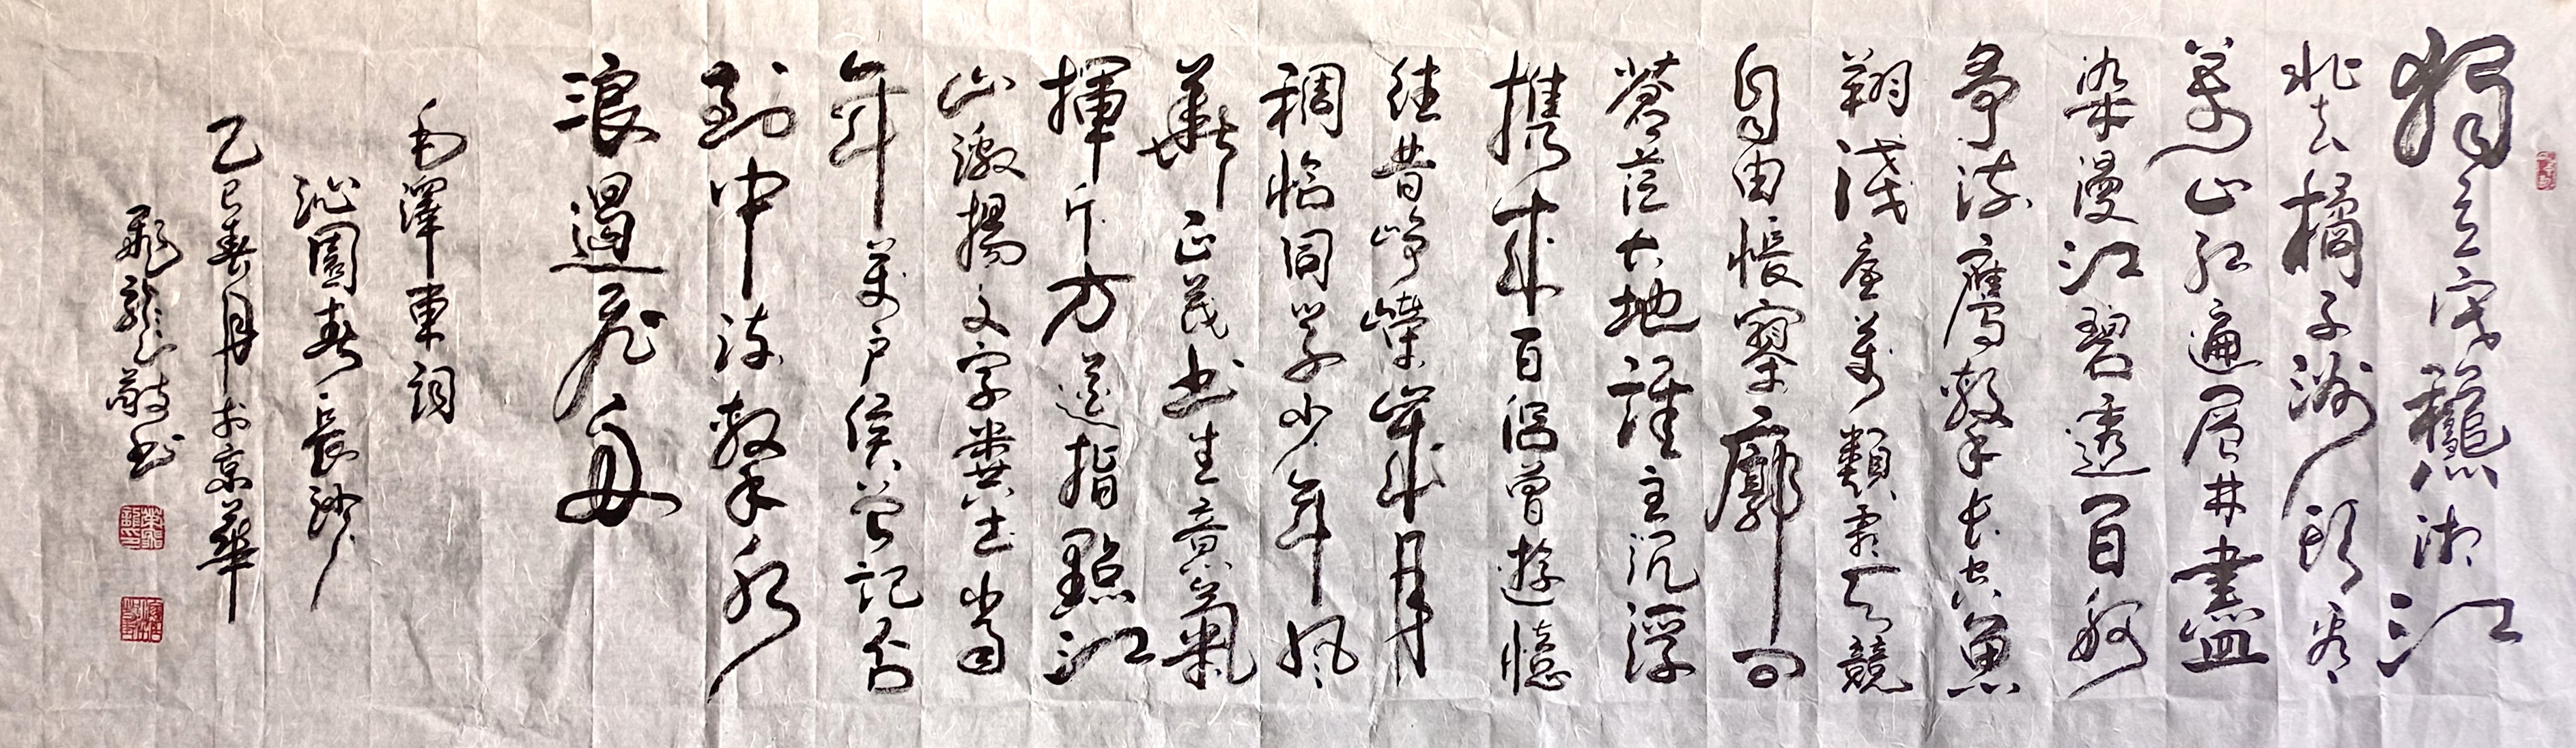 獨立寒龝湘江
北去橘子洲頭看
萬山紅遍層林盡
染漫江碧透百舸
爭流鷹擊長空魚
翔淺底萬類霜天競
自由悵寥廓問
蒼茫大地誰主沉浮
携來百侶曾遊憶
往昔崢嶸歲月
稠恰同學少年風
華正茂书生意氣
揮斥方遒指點江
山激揚文字糞土當
年萬户侯曾記否
到中流擊水
浪遏飛舟
毛澤東詞
沁園春長沙
乙巳春月於京華
龍敬书